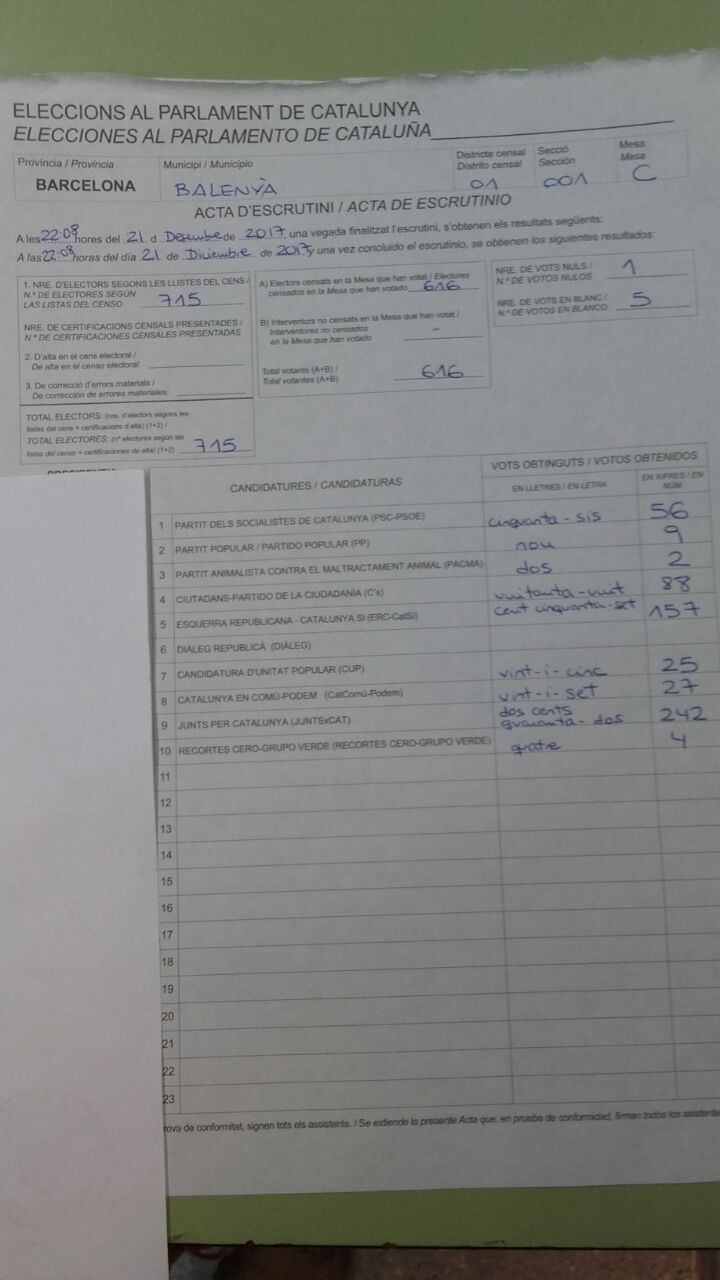 ELECCIONS AL PARLAMENT DE CATALUNYA
ELECCIONES AL PARLAMENTO DE CATALUÑA
Província / Provincia
BARCELONA
Municipi / Municipio
BALENYÀ
Districte censal
Distrito censal
01
Secció
Sección
001
Mesa
Mesa
C
ACTA D'ESCRUTINI / ACTA DE ESCRUTINIO
A les 22:08 hores del 21 d Desembre de 2017 una vegada finalitzat l'escrutini, s'obtenen els resultats següents:
A las 22:08 horas del día 21 de Diciembre de 2017 y una vez concluido el escrutinio, se obtienen los siguientes resultados:
1. NRE. D'ELECTORS SEGONS LES LLISTES DEL CENS /
N.º DE ELECTORES SEGÚN
LAS LISTAS DEL CENSO 715
NRE. DE CERTIFICACIONS CENSALS PRESENTADES /
N.º DE CERTIFICACIONES CENSALES PRESENTADAS
2. D'alta en el cens electoral /
De alta en el censo electoral:
3. De correcció d'errors materials /
De corrección de errores materiales:
TOTAL ELECTORS: (nre. d'electors segons les
llistes del cens + certificacions d'alta) (1+2) /
TOTAL ELECTORES: (nº electores según las
listas del censo + certificaciones de alta) (1+2) 715
A) Electors censats en la Mesa que han votat / Electores
censados en la Mesa que han votado 616
B) Interventors no censats en la Mesa que han votat /
Interventores no censados
en la Mesa que han votado -
Total votants (A+B) /
Total votantes (A+B) 616
NRE. DE VOTS NULS /
N.º DE VOTOS NULOS 1
NRE. DE VOTS EN BLANC /
N.º DE VOTOS EN BLANCO 5
CANDIDATURES / CANDIDATURAS
VOTS OBTINGUTS / VOTOS OBTENIDOS
EN LLETRES / EN LETRA
EN XIFRES / EN
NÚM.
1 PARTIT DELS SOCIALISTES DE CATALUNYA (PSC-PSOE) cinquanta-sis 56
2 PARTIT POPULAR / PARTIDO POPULAR (PP) nou 9
3 PARTIT ANIMALISTA CONTRA EL MALTRACTAMENT ANIMAL (PACMA) dos 2
4 CIUTADANS-PARTIDO DE LA CIUDADANÍA (C's) vuitanta-vuit 88
5 ESQUERRA REPUBLICANA - CATALUNYA SÍ (ERC-CatSí) cent cinquanta-set 157
6 DIÀLEG REPUBLICÀ (DIÀLEG)
7 CANDIDATURA D'UNITAT POPULAR (CUP) vint-i-cinc 25
8 CATALUNYA EN COMÚ-PODEM (CatComú-Podem) vint-i-set 27
9 JUNTS PER CATALUNYA (JUNTSxCAT) dos cents quaranta-dos 242
10 RECORTES CERO-GRUPO VERDE (RECORTES CERO-GRUPO VERDE) quatre 4
11
12
13
14
15
16
17
18
19
20
21
22
23
rova de conformitat, signen tots els assistents. / Se extiende la presente Acta que, en prueba de conformidad, firman todos los asistente